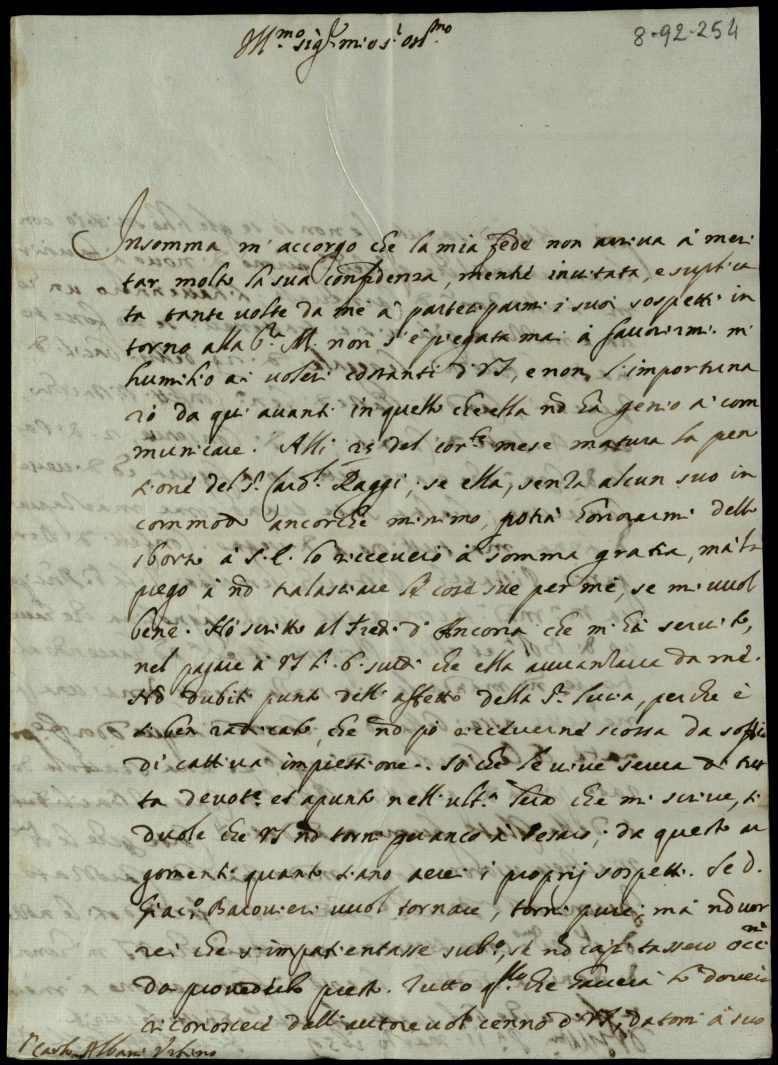 8-92-254
Ill.mo sig.r mio s.r oss.mo
Insomma m'accorgo che la mia fede non arriva à meri
tar molto la sua confidenza, mentre invitata, e suplica
ta tante volte da me à parteciparmi i suoi sospetti in
torno alla S.ra M. non s'è piegata mai à favorirmi. mi
humilio ai voleri costanti di VS, e non l'importuna
rò da qui avanti in quello che ella nō hà genio di com
municare. Alli 25 del cor.te mese matura la pen
sione del S.r Card.l Raggi; se ella, senza alcun suo in
commodo ancorche minimo, potrà honorarmi dello
sborso à S.E. lo riceverò à somma gratia, mà la
prego à nō tralasciare le cose sue per me, se mi vuol
bene. Hò scritto al Fredi d'Ancona che m'hà servito,
nel pagare à VS li 6 scudi che ella avvanzava da me.
Nō dubiti punto dell'affetto della S.ra Lucia, perche è
si ben radicato, che nō pò riceverne scossa da soffio
di cattiva impressione. Sò che le vive serva di tut
ta devot.e et apunto nell'ult.a sera che mi scrive, si
duole che VS nō torni per anco à Pesaro; da questo ar
gomenti quanto siano aerei i proprij sospetti. Se D.
Giac.o Bacovieri vuol tornare, torni pure; mà nō vor
rei che s'impatientasse sub.o, se nō capitassero occ.ni
da provederlo presto. Tutto q.llo che haverà lo dovrà
riconoscere dall'autorevol cenno di VS, datomi à suo
S.r Carlo Albani Urbino